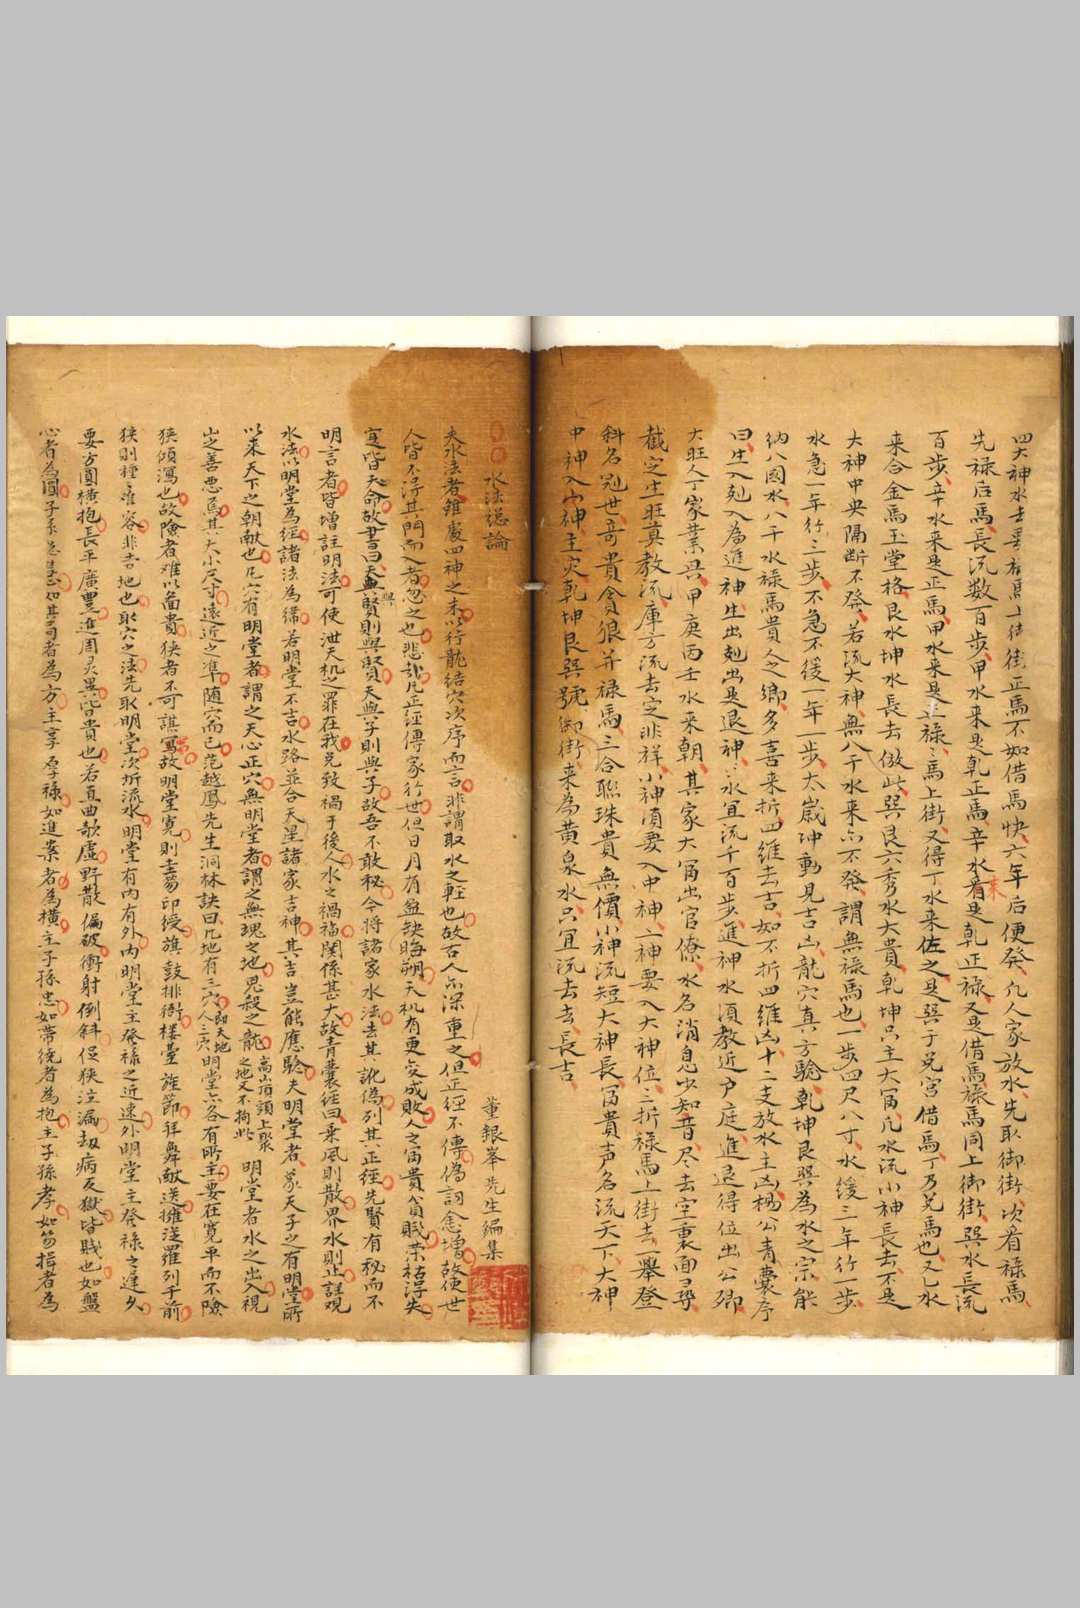 四大神水去 馬上街 正馬不如借馬快六年后便發凢人家放水先取御街次看禄馬
先禄后馬長流数百步甲水来是乾正馬辛水来看是乾正禄又是借馬禄馬同上御街巽水長流
百步辛水来是正馬甲水来是正禄禄馬上街又得丁水来佐之是巽于兌宮借馬丁乃兌馬也又乙水
来合金馬玉堂格艮水坤水長去倣此巽艮六秀水大貴乾坤只主大富凢水流小神長去不是
大神中央隔断不發若流大神無八干水来亦不發謂無禄馬也一步四尺八寸水緩三年行一步
水急一年行三步不急不緩一年一步太歳冲動見吉凶龍穴真方驗乾坤艮巽為水之宗能
納八國水八干水禄馬貴人之鄉多喜来折四維去吉如不折四維凶十二支放水主凶楊公青囊序
曰生入剋入為進神生出剋出是退神 水宜流千百步進神水須教近户庭進退得位出公卿
大旺人丁家業興甲庚丙壬水来朝其家大富出官僚水名消息少知音尽去空裏面尋
截定生旺真教流庫方流去定非祥小神須要入中神中神要入大神位三折禄馬上街去一舉登
科名冠世奇貴貪狼并禄馬三合聯珠貴無價小神流短大神長富貴声名流天下大神
中神入小神主災乾坤艮巽號御街来為黄泉水只宜流去去長吉
水法総論
董銀峯先生編集
夫水法者雖處四神之末以行龍結穴次序而言非謂取水之輕也故古人亦深重之但正經不傳偽詞愈增故使世
人皆不得其門而入者忽之也悲哉凢正經傳家行世但日月有盈缺晦朔天机有更変成敗人之富貴貧賤荣枯得失
寔皆天命故書曰天與賢則與賢天與子則與子故吾不敢秘今將諸家水法去其訛偽列其正經先賢有秘而不
明言者皆增註明法可使泄天机之罪在我免致禍于後人水之禍福関係甚大故青囊經曰乘風則散界水則止註观
水法以明堂為經諸法為緯若明堂不吉水路並合天星諸家吉神其吉豈能應驗夫明堂者象天子之有明堂所
以来天下之朝献也凢穴有明堂者謂之天心正穴無明堂者謂之無瑰之地鬼殺之龍高山肖頭上聚之地又不拘此明堂者水之出入視
山之善悪焉其大小尺寸遠近之凖随穴而已范越鳳先生洞林訣曰凢地有三穴即天地人三穴明堂亦各有所主要在寛平而不險
狹傾瀉也故險者难以啚貴狹者不可謀富故明堂寛則圭笏印綬旗鼓排衙楼臺旌節拜舞献送擁送羅列于前
狹則種 容非吉地也取穴之法先取明堂次折流水明堂有内有外内明堂主發禄之近速外明堂主發禄之遲久
要方圓横抱長平廣豐進周灵異皆貴也若直曲欹虚野散偏破衝射倒斜促狹泣漏刼病反獄皆賤也如盤
心者為圓子 如其司者為方主享厚禄如進案者為横主子孫忠如帶绕者為抱主子孫孝如笏揖者為